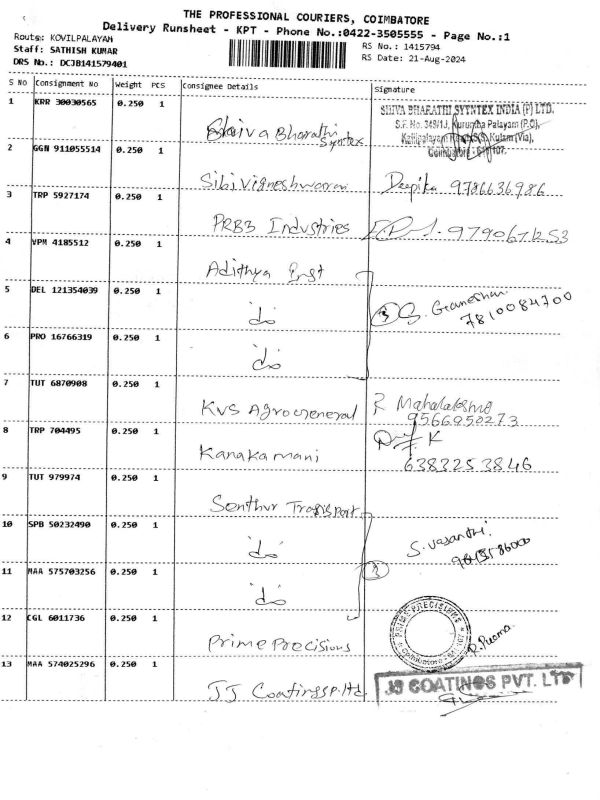 THE PROFESSIONAL COURIERS, COIMBATORE
Delivery Runsheet - KPT - Phone No.:0422-3505555 - Page No.:1
Route: KOVILPALAYAM
RS No.: 1415794
Staff: SATHISH KUMAR
RS Date: 21-Aug-2024
DRS No.: DCJB141579401
S NO Consignment No Weight PCS Consignee Details Signature
1 KRR 30030565 0.250 1 Shiva Bharathi Syntex
SHIVA BHARATHI SYTNTEX INDIA (P) LTD.
S.F. No. 349/1J, Kurumba Palayam (P.O),
Kulam (Via),
Coimbatore - 641 107.
2 GGN 911055514 0.250 1 Sibi Vigneshwaran Deepika 9786636986
3 TRP 5927174 0.250 1 PRB3 Industries
4 VPM 4185512 0.250 1 Adithya Engt
5 DEL 121354039 0.250 1 do 3 S. Ganeshan 7810084700
6 PRO 16766319 0.250 1 do
7 TUT 6870908 0.250 1 KVS Agro General R Mahalakshmi 9566950273
8 TRP 704495 0.250 1 Kanakamani K 6383253846
9 TUT 979974 0.250 1 Senthur Transport
10 SPB 50232490 0.250 1 do S. Vasanthi
11 MAA 575703256 0.250 1 do
12 CGL 6011736 0.250 1 Prime Precisions PRIME PRECISIONS R. Prema
13 MAA 574025296 0.250 1 JJ Coatings P. Ltd. JJ COATINGS PVT. LTD